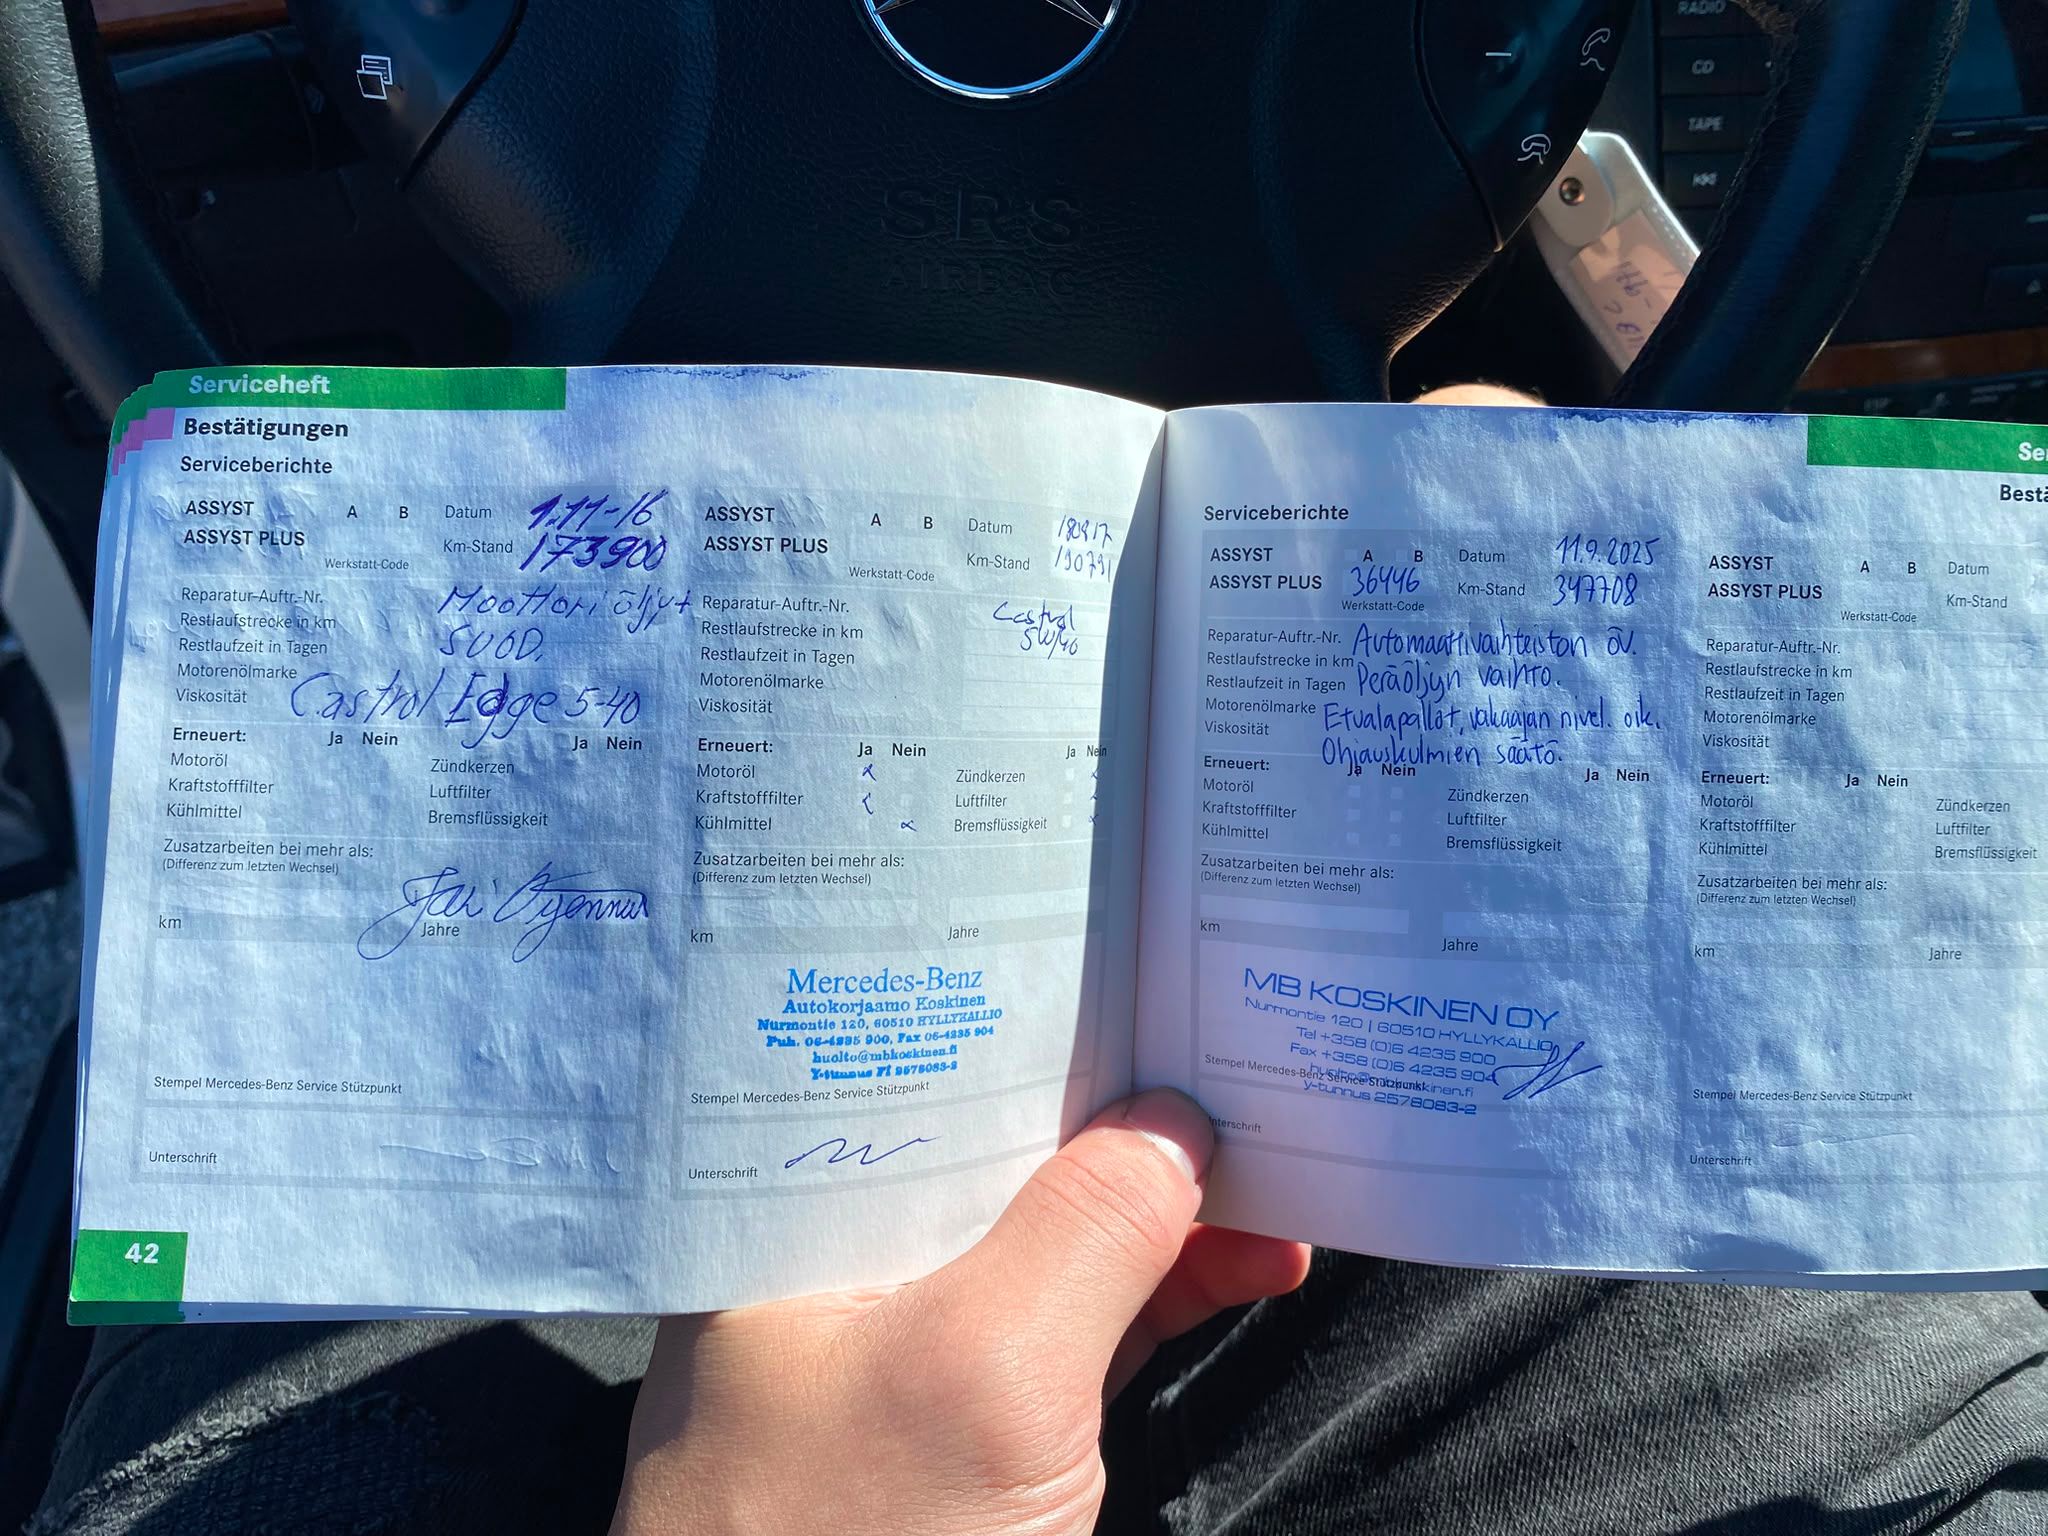 RADIO
CD
TAPE
SRS
AIRBAG
Serviceheft
Bestätigungen
Serviceberichte
ASSYST A B Datum 1.11-16
ASSYST PLUS Km-Stand 173900
Werkstatt-Code
Reparatur-Auftr.-Nr. Moottoriöljyt
Restlaufstrecke in km
Restlaufzeit in Tagen SUOD.
Motorenölmarke
Viskosität Castrol Edge 5-40
Erneuert: Ja Nein Ja Nein
Motoröl Zündkerzen
Kraftstofffilter Luftfilter
Kühlmittel Bremsflüssigkeit
Zusatzarbeiten bei mehr als:
(Differenz zum letzten Wechsel)
km Jahre
Jari
Stempel Mercedes-Benz Service Stützpunkt
Unterschrift
42
ASSYST A B Datum
ASSYST PLUS Km-Stand 190791
Werkstatt-Code
Reparatur-Auftr.-Nr. Castrol
Restlaufstrecke in km 5W/40
Restlaufzeit in Tagen
Motorenölmarke
Viskosität
Erneuert: Ja Nein Ja Nein
Motoröl Zündkerzen
Kraftstofffilter Luftfilter
Kühlmittel Bremsflüssigkeit
Zusatzarbeiten bei mehr als:
(Differenz zum letzten Wechsel)
km Jahre
Mercedes-Benz
Autokorjaamo Koskinen
Nurmontie 120, 60510 HYLLYKALLIO
Puh. 06-4235 900, Fax 06-4235 904
huolto@mbkoskinen.fi
Y-tunnus FI 2578083-2
Stempel Mercedes-Benz Service Stützpunkt
Unterschrift
Serviceberichte
ASSYST A B Datum 11.9.2025
ASSYST PLUS 36446 Km-Stand 347708
Werkstatt-Code
Reparatur-Auftr.-Nr. Automaattivaihteiston öv.
Restlaufstrecke in km
Restlaufzeit in Tagen Peräöljyn vaihto.
Motorenölmarke Etualapallot, vakaajan nivel. oik.
Viskosität
Ohjauskulmien säätö.
Erneuert: Ja Nein Ja Nein
Motoröl Zündkerzen
Kraftstofffilter Luftfilter
Kühlmittel Bremsflüssigkeit
Zusatzarbeiten bei mehr als:
(Differenz zum letzten Wechsel)
km Jahre
MB KOSKINEN OY
Nurmontie 120 | 60510 HYLLYKALLIO
Tel +358 (0)6 4235 900
Fax +358 (0)6 4235 904
Stempel Mercedes-Benz Service Stützpunkt
y-tunnus 2578083-2
Unterschrift
ASSYST A B Datum
ASSYST PLUS Km-Stand
Werkstatt-Code
Reparatur-Auftr.-Nr.
Restlaufstrecke in km
Restlaufzeit in Tagen
Motorenölmarke
Viskosität
Erneuert: Ja Nein
Motoröl Zündkerzen
Kraftstofffilter Luftfilter
Kühlmittel Bremsflüssigkeit
Zusatzarbeiten bei mehr als:
(Differenz zum letzten Wechsel)
km Jahre
Stempel Mercedes-Benz Service Stützpunkt
Unterschrift